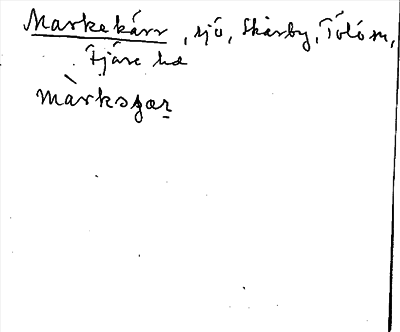 Markekärr, sjö, Skårby, Tölö sn,
Fjäre hd
màrksɟær